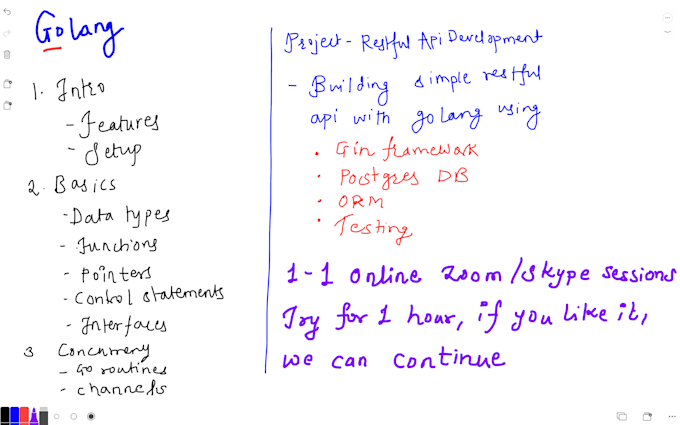 Golang
1. Intro
- Features
- Setup
2. Basics
- Data types
- Functions
- Pointers
- Control statements
- Interfaces
3 Concurrency
- Go routines
- channels
Project - Restful Api Development
- Building simple restful
api with golang using
• Gin framework
• Postgres DB
• ORM
• Testing
1-1 online zoom/skype sessions
Try for 1 hour, if you like it,
we can continue